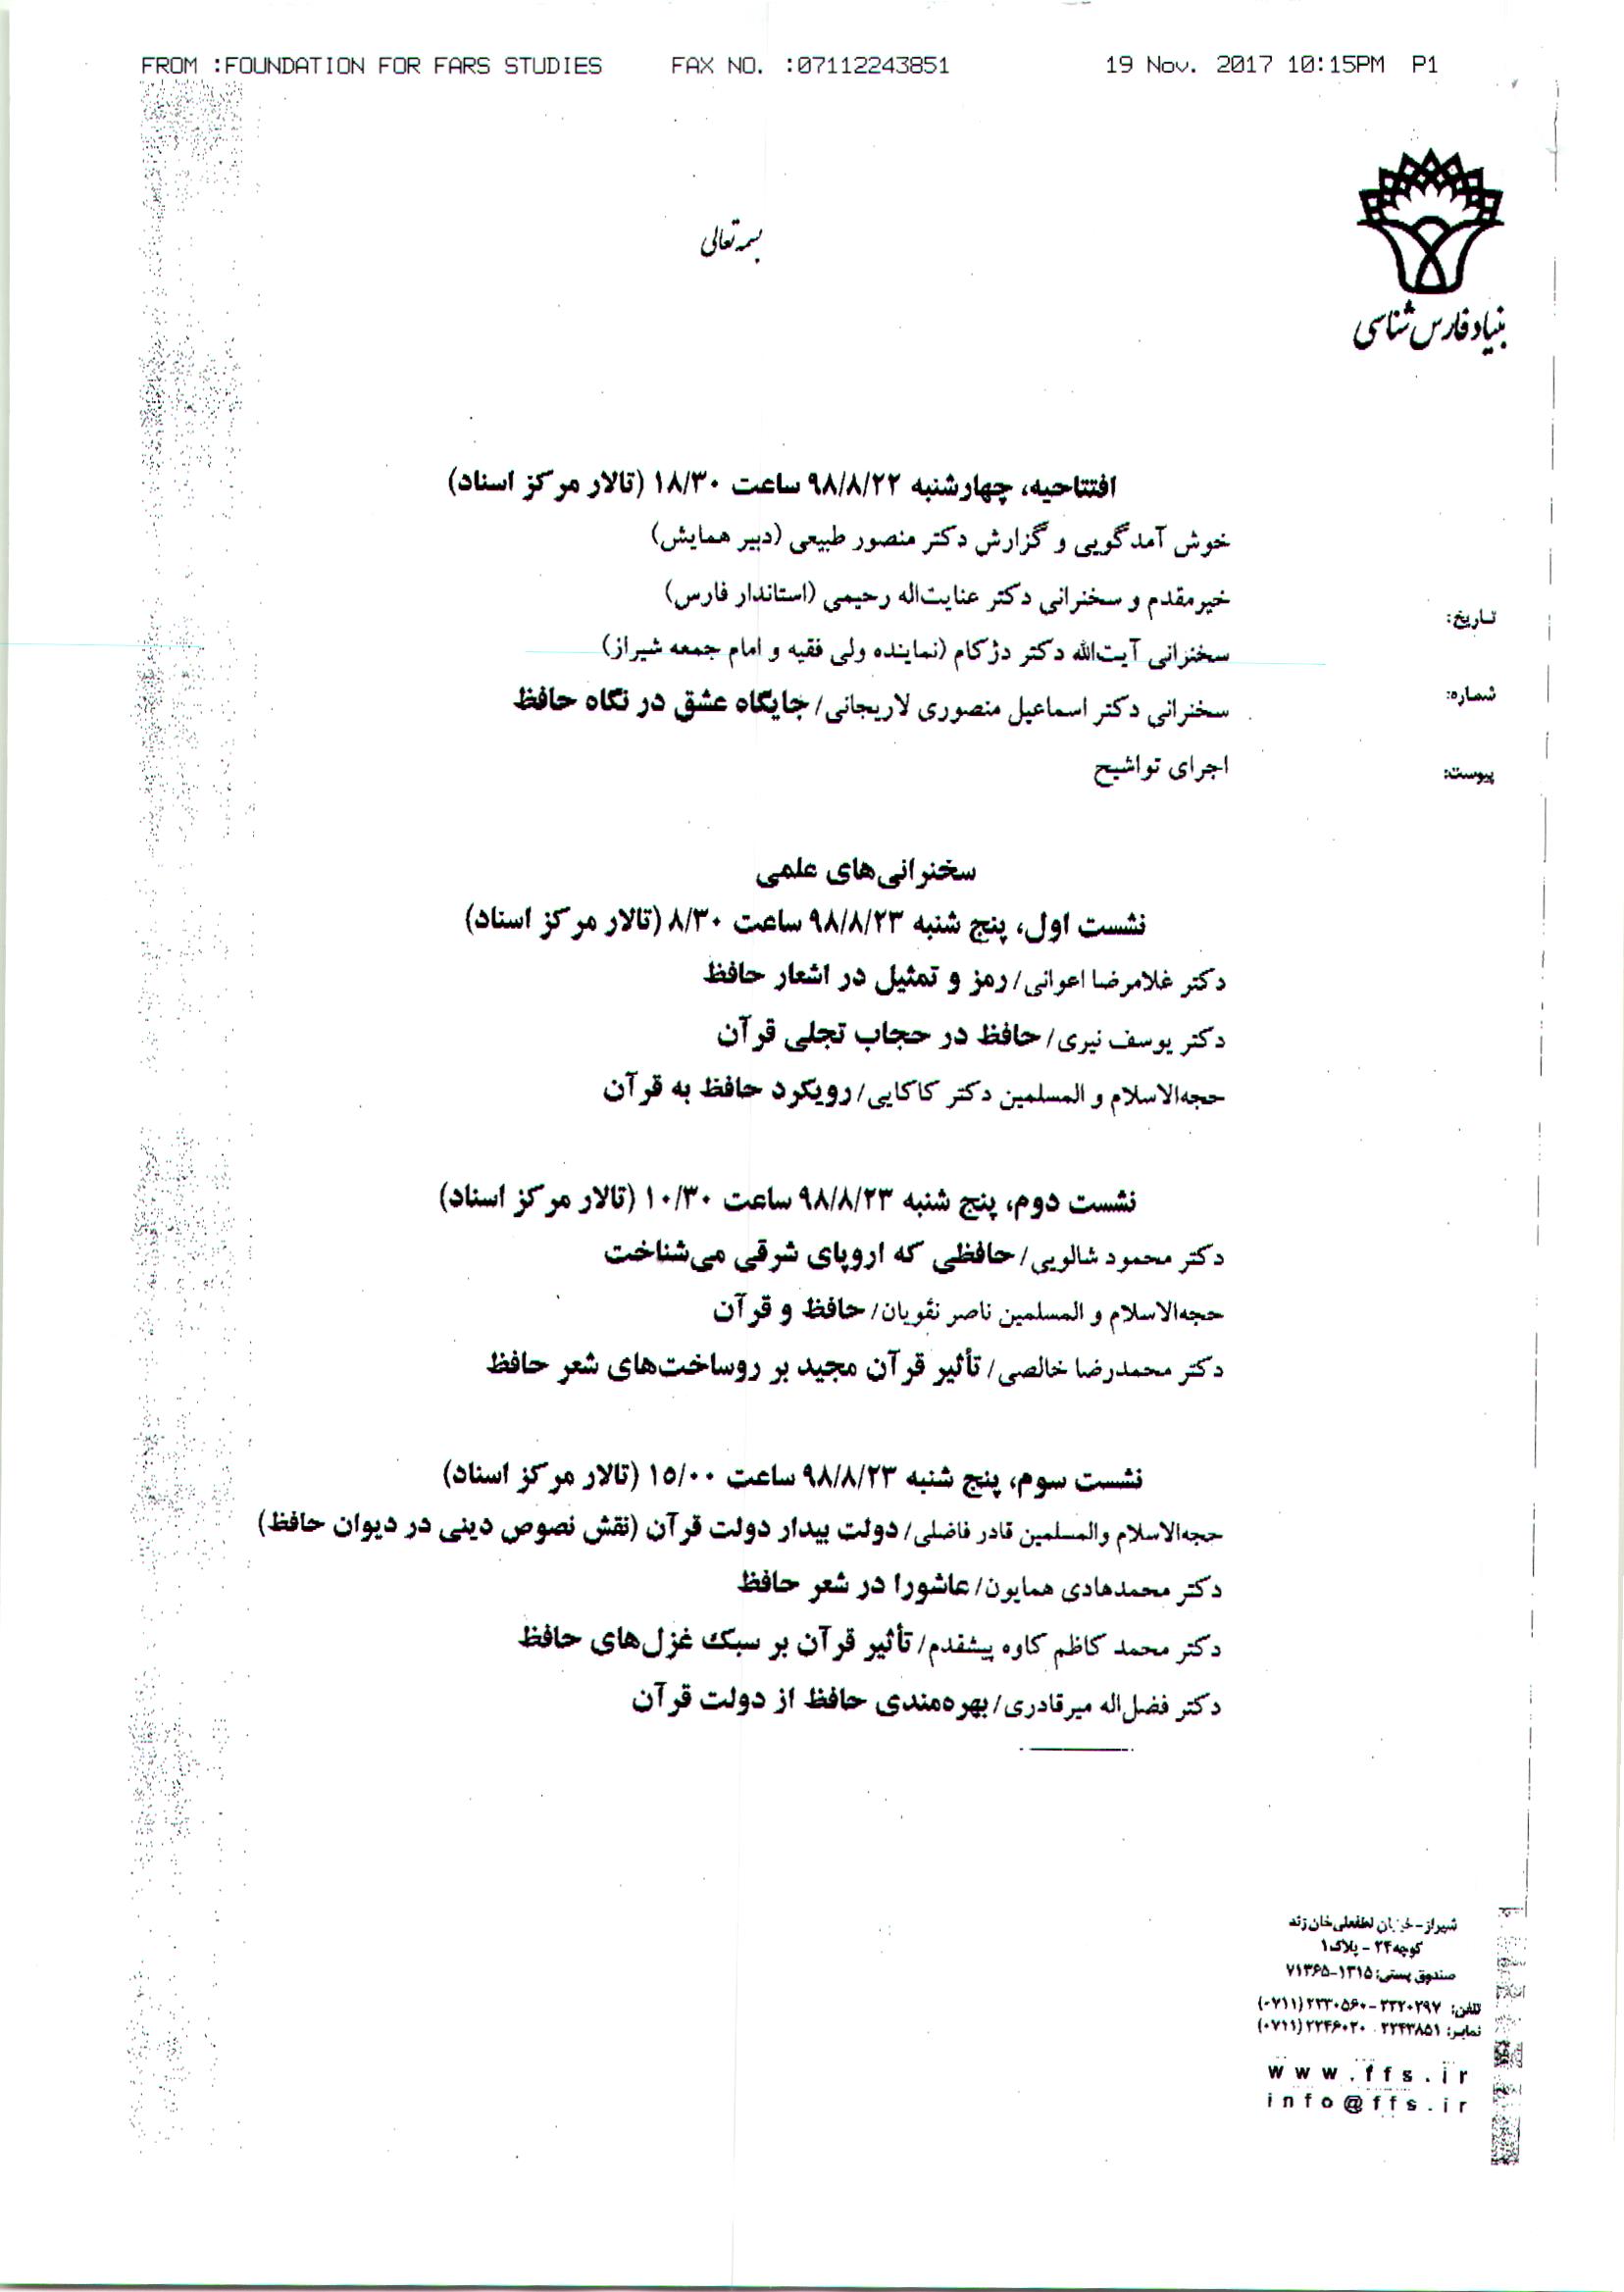 FROM :FOUNDATION FOR FARS STUDIES FAX NO. :07112243851 19 Nov. 2017 10:15PM P1
بسمه تعالی
بنیاد فارس شناسی
تاریخ:
شماره:
پیوست:
افتتاحیه، چهارشنبه ۹۸/۸/۲۲ ساعت ۱۸/۳۰ (تالار مرکز اسناد)
خوش آمدگویی و گزارش دکتر منصور طبیعی (دبیر همایش)
خیرمقدم و سخنرانی دکتر عنایت‌اله رحیمی (استاندار فارس)
سخنرانی آیت‌الله دکتر دژکام (نماینده ولی فقیه و امام جمعه شیراز)
سخنرانی دکتر اسماعیل منصوری لاریجانی/ جایگاه عشق در نگاه حافظ
اجرای تواشیح
سخنرانی‌های علمی
نشست اول، پنج شنبه ۹۸/۸/۲۳ ساعت ۸/۳۰ (تالار مرکز اسناد)
دکتر غلامرضا اعوانی/ رمز و تمثیل در اشعار حافظ
دکتر یوسف نیری/ حافظ در حجاب تجلی قرآن
حجه‌الاسلام و المسلمین دکتر کاکایی/ رویکرد حافظ به قرآن
نشست دوم، پنج شنبه ۹۸/۸/۲۳ ساعت ۱۰/۳۰ (تالار مرکز اسناد)
دکتر محمود شالویی/ حافظی که اروپای شرقی می‌شناخت
حجه‌الاسلام و المسلمین ناصر نقویان/ حافظ و قرآن
دکتر محمدرضا خالصی/ تأثیر قرآن مجید بر روساخت‌های شعر حافظ
نشست سوم، پنج شنبه ۹۸/۸/۲۳ ساعت ۱۵/۰۰ (تالار مرکز اسناد)
حجه‌الاسلام والمسلمین قادر فاضلی/ دولت بیدار دولت قرآن (نقش نصوص دینی در دیوان حافظ)
دکتر محمدهادی همایون/ عاشورا در شعر حافظ
دکتر محمد کاظم کاوه پیشقدم/ تأثیر قرآن بر سبک غزل‌های حافظ
دکتر فضل‌اله میرقادری/ بهره‌مندی حافظ از دولت قرآن
شیراز - خیابان لطفعلی خان زند
کوچه ۲۴ - پلاک ۱
صندوق پستی: ۱۳۱۵-۷۱۳۶۵
تلفن: ۲۲۲۰۲۹۷ - ۲۲۳۰۵۶۰ (۰۷۱۱)
نمابر: ۲۲۴۳۸۵۱ ۲۲۴۶۰۲۰ (۰۷۱۱)
www.ffs.ir
info@ffs.ir